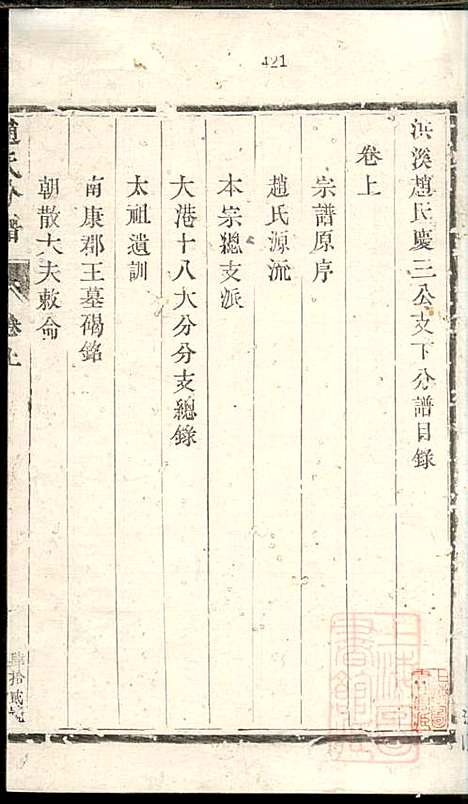 421
洪溪趙氏慶三公支下分譜目錄
卷上
宗譜原序
趙氏源流
本宗總支派
大港十八大分分支總錄
太祖遺訓
南康郡王墓碣銘
朝散大夫敕命
趙氏分譜
卷上